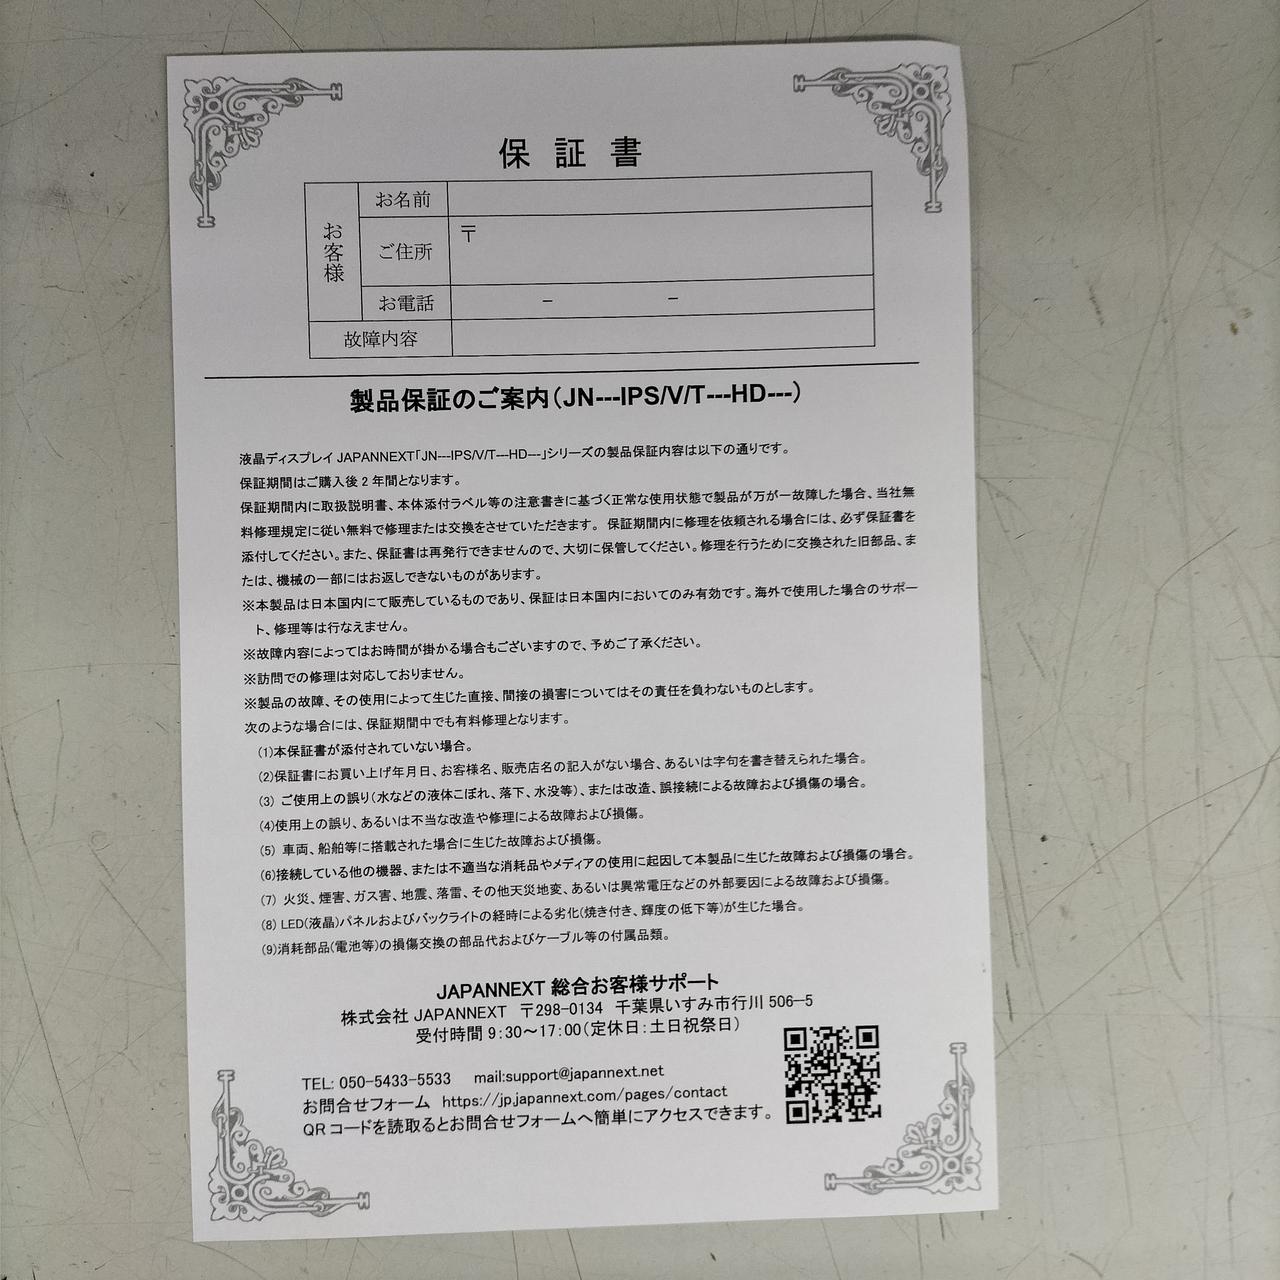 保証書
お客様
お名前
ご住所
〒
お電話
－ －
故障内容
製品保証のご案内(JN---IPS/V/T---HD---)
液晶ディスプレイ JAPANNEXT「JN---IPS/V/T---HD---」シリーズの製品保証内容は以下の通りです。
保証期間はご購入後 2 年間となります。
保証期間内に取扱説明書、本体添付ラベル等の注意書きに基づく正常な使用状態で製品が万が一故障した場合、当社無
料修理規定に従い無料で修理または交換をさせていただきます。 保証期間内に修理を依頼される場合には、必ず保証書を
添付してください。また、保証書は再発行できませんので、大切に保管してください。修理を行うために交換された旧部品、ま
たは、機械の一部にはお返しできないものがあります。
※本製品は日本国内にて販売しているものであり、保証は日本国内においてのみ有効です。海外で使用した場合のサポー
ト、修理等は行なえません。
※故障内容によってはお時間が掛かる場合もございますので、予めご了承ください。
※訪問での修理は対応しておりません。
※製品の故障、その使用によって生じた直接、間接の損害についてはその責任を負わないものとします。
次のような場合には、保証期間中でも有料修理となります。
(1)本保証書が添付されていない場合。
(2)保証書にお買い上げ年月日、お客様名、販売店名の記入がない場合、あるいは字句を書き替えられた場合。
(3) ご使用上の誤り(水などの液体こぼれ、落下、水没等)、または改造、誤接続による故障および損傷の場合。
(4)使用上の誤り、あるいは不当な改造や修理による故障および損傷。
(5) 車両、船舶等に搭載された場合に生じた故障および損傷。
(6)接続している他の機器、または不適当な消耗品やメディアの使用に起因して本製品に生じた故障および損傷の場合。
(7) 火災、煙害、ガス害、地震、落雷、その他天災地変、あるいは異常電圧などの外部要因による故障および損傷。
(8) LED(液晶)パネルおよびバックライトの経時による劣化(焼き付き、輝度の低下等)が生じた場合。
(9)消耗部品(電池等)の損傷交換の部品代およびケーブル等の付属品類。
JAPANNEXT 総合お客様サポート
株式会社 JAPANNEXT 〒298-0134 千葉県いすみ市行川 506−5
受付時間 9:30～17:00(定休日:土日祝祭日)
TEL: 050-5433-5533 mail:support@japannext.net
お問合せフォーム https://jp.japannext.com/pages/contact
QR コードを読取るとお問合せフォームへ簡単にアクセスできます。